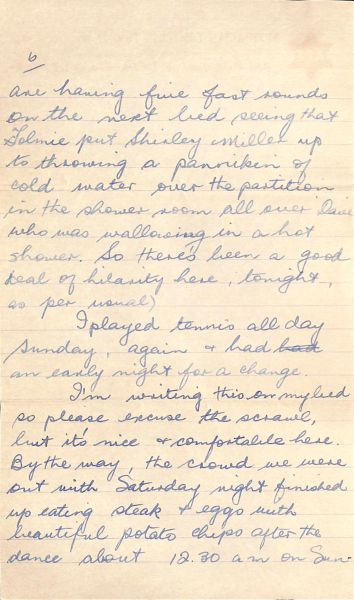 6
are having five fast rounds
on the next bed seeing that
Tolmie put Shirley Miller up
to throwing a panniken of
cold water over the partition
in the shower room all over Dave
who was wallowing in a hot
shower. So there's been a good
deal of hilarity here, tonight,
as per usual)
I played tennis all day
Sunday, again & had had
an early night for a change.
I'm writing this on my bed
so please excuse the scrawl,
but it's nice & comfortable here.
By the way, the crowd we were
out with Saturday night finished
up eating steak & eggs with
beautiful potato chips after the
dance about 12.30 a m on Sun-